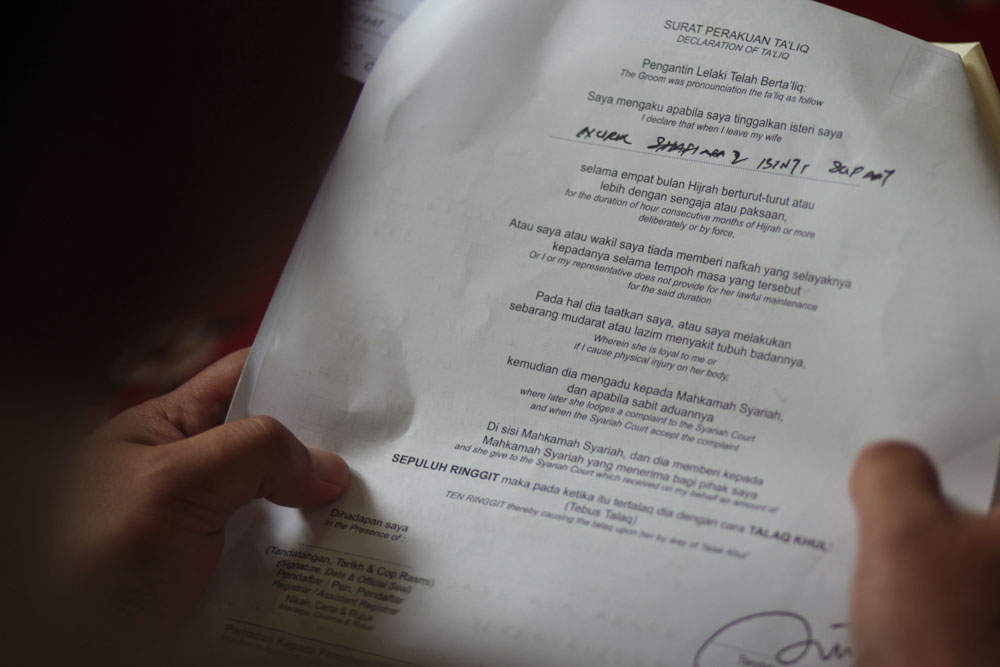 SURAT PERAKUAN TA'LIQ
DECLARATION OF TA'LIQ
Pengantin Lelaki Telah Berta'liq:
The Groom was pronounciation the ta'liq as follow
Saya mengaku apabila saya tinggalkan isteri saya
I declare that when I leave my wife
BINTI
selama empat bulan Hijrah berturut-turut atau
lebih dengan sengaja atau paksaan,
for the duration of hour consecutive months of Hijrah or more
deliberately or by force,
Atau saya atau wakil saya tiada memberi nafkah yang selayaknya
kepadanya selama tempoh masa yang tersebut
Or I or my representative does not provide for her lawful maintenance
for the said duration
Pada hal dia taatkan saya, atau saya melakukan
sebarang mudarat atau lazim menyakit tubuh badannya,
Wherein she is loyal to me or
if I cause physical injury on her body,
kemudian dia mengadu kepada Mahkamah Syariah,
dan apabila sabit aduannya
where later she lodges a complaint to the Syariah Court
and when the Syariah Court accept the complaint
Di sisi Mahkamah Syariah, dan dia memberi kepada
Mahkamah Syariah yang menerima bagi pihak saya
and she give to the Syariah Court which received on my behalf an amount of
SEPULUH RINGGIT maka pada ketika itu tertalaq dia dengan cara TALAQ KHUL'
(Tebus Talaq)
TEN RINGGIT thereby causing the talaq upon her by way of Talak Khul'
Dihadapan saya
In the Presence of :
(Tandatangan, Tarikh & Cop Rasmi)
(Signature, Date & Official Seal)
Pendaftar / Pen. Pendaftar
Registrar / Assistant Registrar
Nikah, Cerai & Rujuk
Marriage, Divorce & Rujuk
Perhatian Kepada